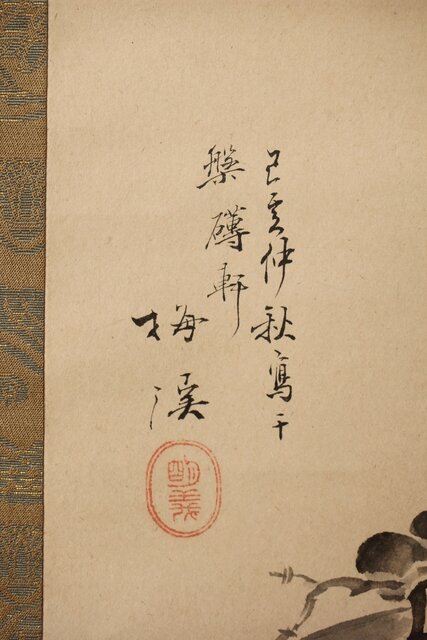 己亥仲秋寫于
槃礴軒
梅溪
明義